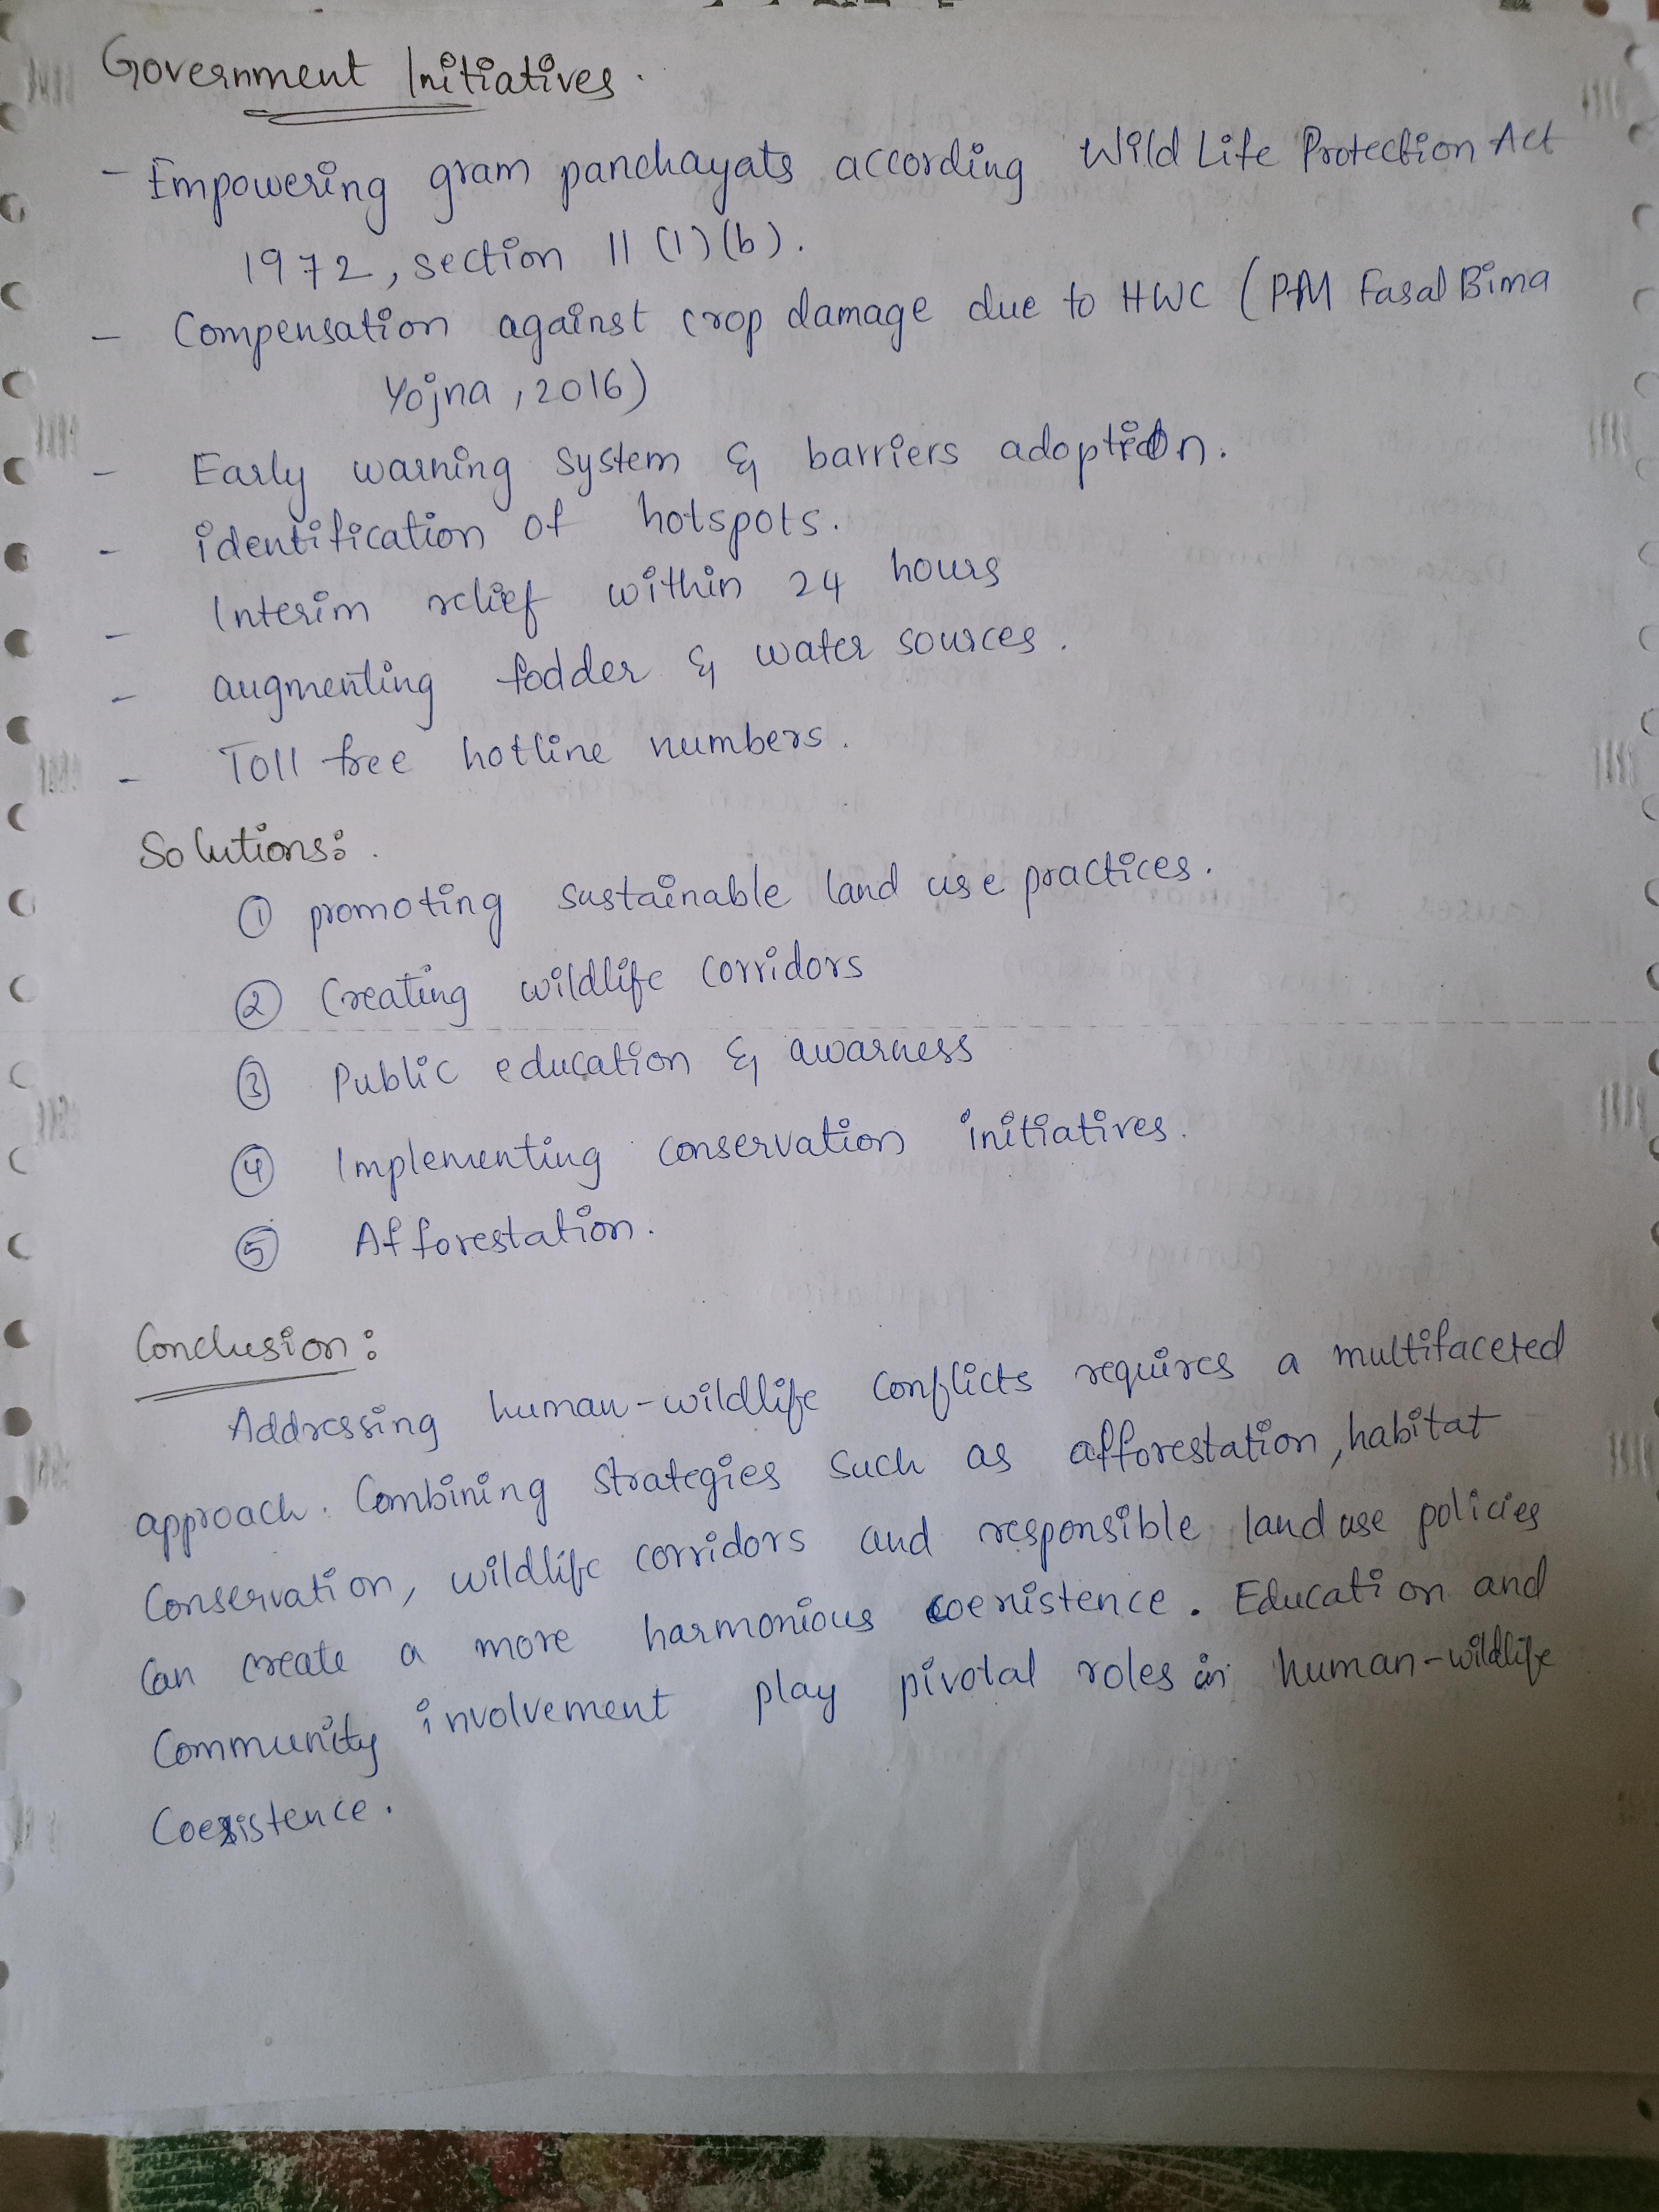 Government Initiatives.
- Empowering gram panchayats according Wild Life Protection Act
1972, section 11 (1)(b).
- Compensation against crop damage due to HWC (PM Fasal Bima
Yojna, 2016)
- Early warning system & barriers adoption.
- identification of hotspots.
- Interim relief within 24 hours
- augmenting fodder & water sources.
- Toll free hotline numbers.
Solutions:
① promoting sustainable land use practices.
② Creating wildlife corridors
③ Public education & awarness
④ Implementing conservation initiatives.
⑤ Afforestation.
Conclusion:
Addressing human-wildlife conflicts requires a multifaceted
approach. Combining strategies such as afforestation, habitat
Conservation, wildlife corridors and responsible land use policies
Can create a more harmonious coexistence. Education and
Community involvement play pivotal roles in human-wildlife
Coexistence.